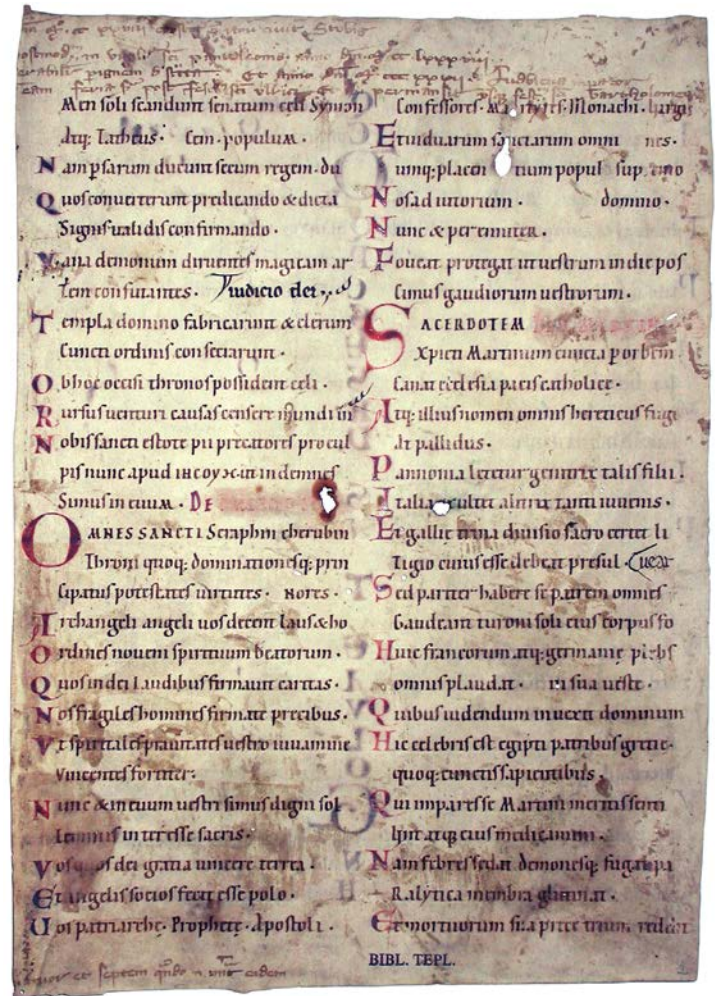 Men soli scandunt senatum celi Symon
Atq: Tatheus. Cem. populum.
Nam psarum ducunt secum regem. du
Quos converterunt predicando & dicta
Signis validis confirmando.
Vana demonum diruentes magicam ar
tem confutantes. Iudicio dei
Templa domino fabricarunt & clerum
Cuncti ordinis consecrarunt.
Ob hoc occisi thronos possident celi.
Rursus venturi causas censere mundi
Nobis sancti estote pii precatores pro cul
pis nunc apud
Simus in evum. DE
OMNES SANCTI Seraphin cherubin
Throni quoq: dominationesq: prin
cipatus potestates virtutes. nores.
Archangeli angeli vos decent laus & ho
Ordines novem spirituum beatorum.
Quos in dei laudibus firmavit caritas.
Nos fragiles homines firmate precibus.
Vt spiritales pravitates vestro iuvamine
Vincentes fortiter.
Nunc & in evum vestri simus digni sol
lemnius interesse sacris.
Vos quos dei gratia vincere terrea.
Et angelis socios fecit esse polo.
Vos patriarche. Prophete. Apostoli.
Confessores. Martyres. Monachi.
Et viduarum sanctarum omni nes.
umq: placen tium popul sup
Nos adiutorium. domino.
Nunc & perenniter.
Foveat protegat ut vestrum in die pos
Cimus gaudiorum vestrorum.
SACERDOTEM
Xpicti Martinum cuncta per orbem
Canat ecclesia pacis catholice.
Atq: illius nomen omnis hereticus fugi
At pallidus.
Pannonia letetur genitrix talis filii.
Italia exultet alitrix tanti iuvenis.
Et gallie trina divisio sacro certet li
Tigio cuius esse debeat presul.
Sed pariter habere se patrem omnes
Gaudeant turoni soli eius corpus fo
Huic francorum atq: germanie plebs
omnis plaudat. in sua veste.
Quibus videndum invexit dominum
Hic celebris est egipti patribus grecie.
quoq: cunctis sapientibus.
Qui impares se Martini meritis senti
unt atq: eius medicamini.
Nam febres sedat demonesq: fugat pa
Ralytica membra glutinat.
Et mortuorum sua prece trium reddit
BIBL. TEPL.